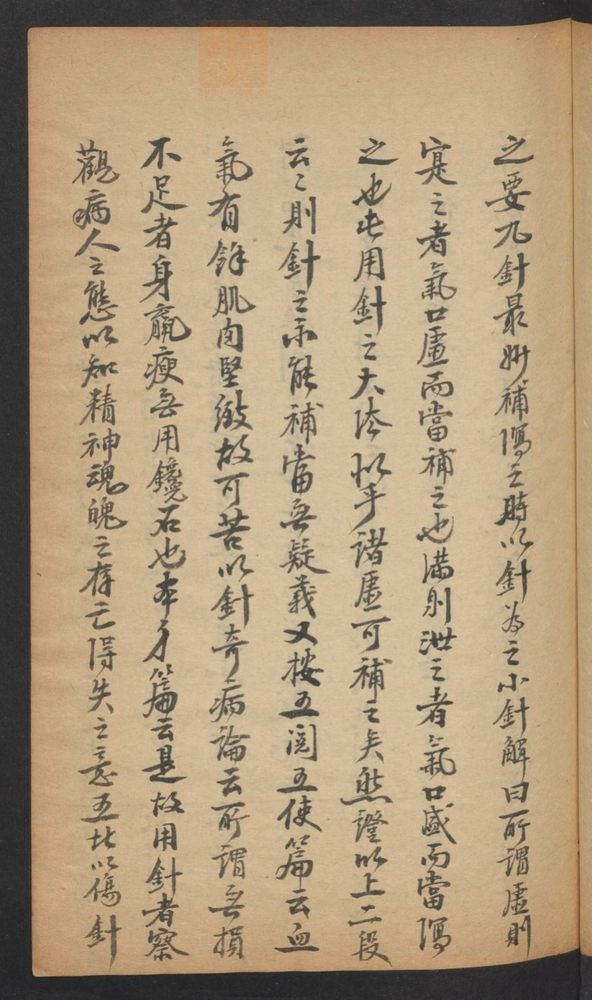 之要九針最妙補瀉之時以針為之小針解曰所謂虛則
寔之者氣口虛而當補之也滿則泄之者氣口盛而當瀉
之也此用針之大法似乎諸虛可補之矣然證以上二段
云〻則針之不能補當無疑義又按五閱五使篇云血
氣有餘肌肉堅緻故可苦以針奇病論云所謂無損
不足者身羸瘦無用鑱石也本才篇云是故用針者察
觀病人之態以知精神魂魄之存亡得失之意五者以傷針